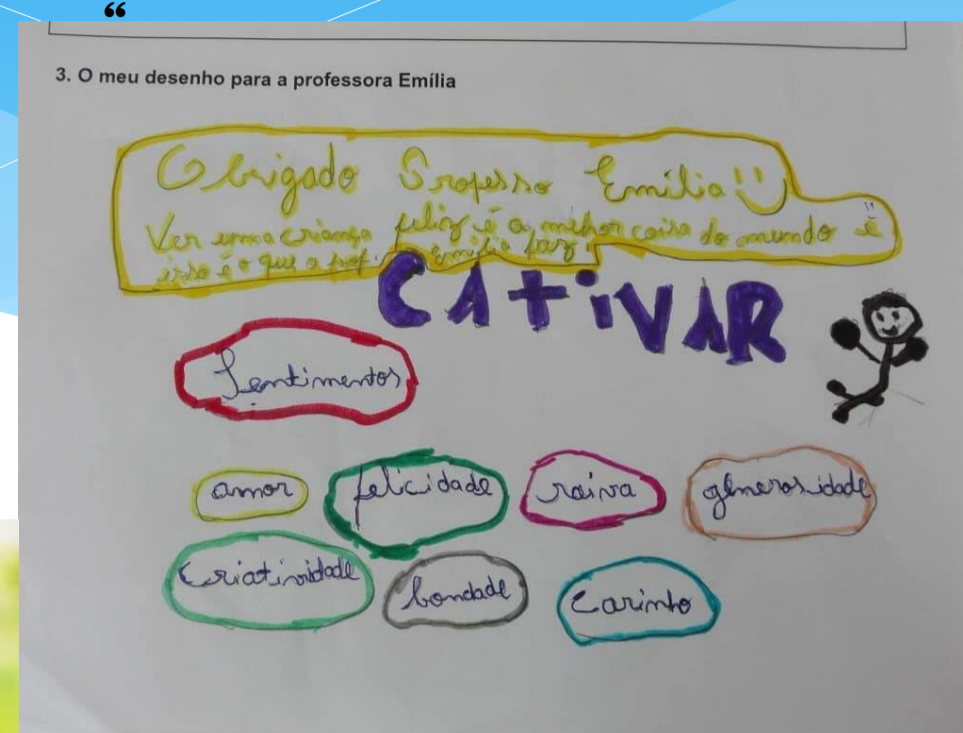 “
3. O meu desenho para a professora Emília
Obrigado Professo Emília!
Ver uma criança feliz é a melhor coisa do mundo e
isso é o que a prof. Emília faz.
CAtiVAR
Sentimentos
amor felicidade raiva generosidade
Criatividade bondade Carinho